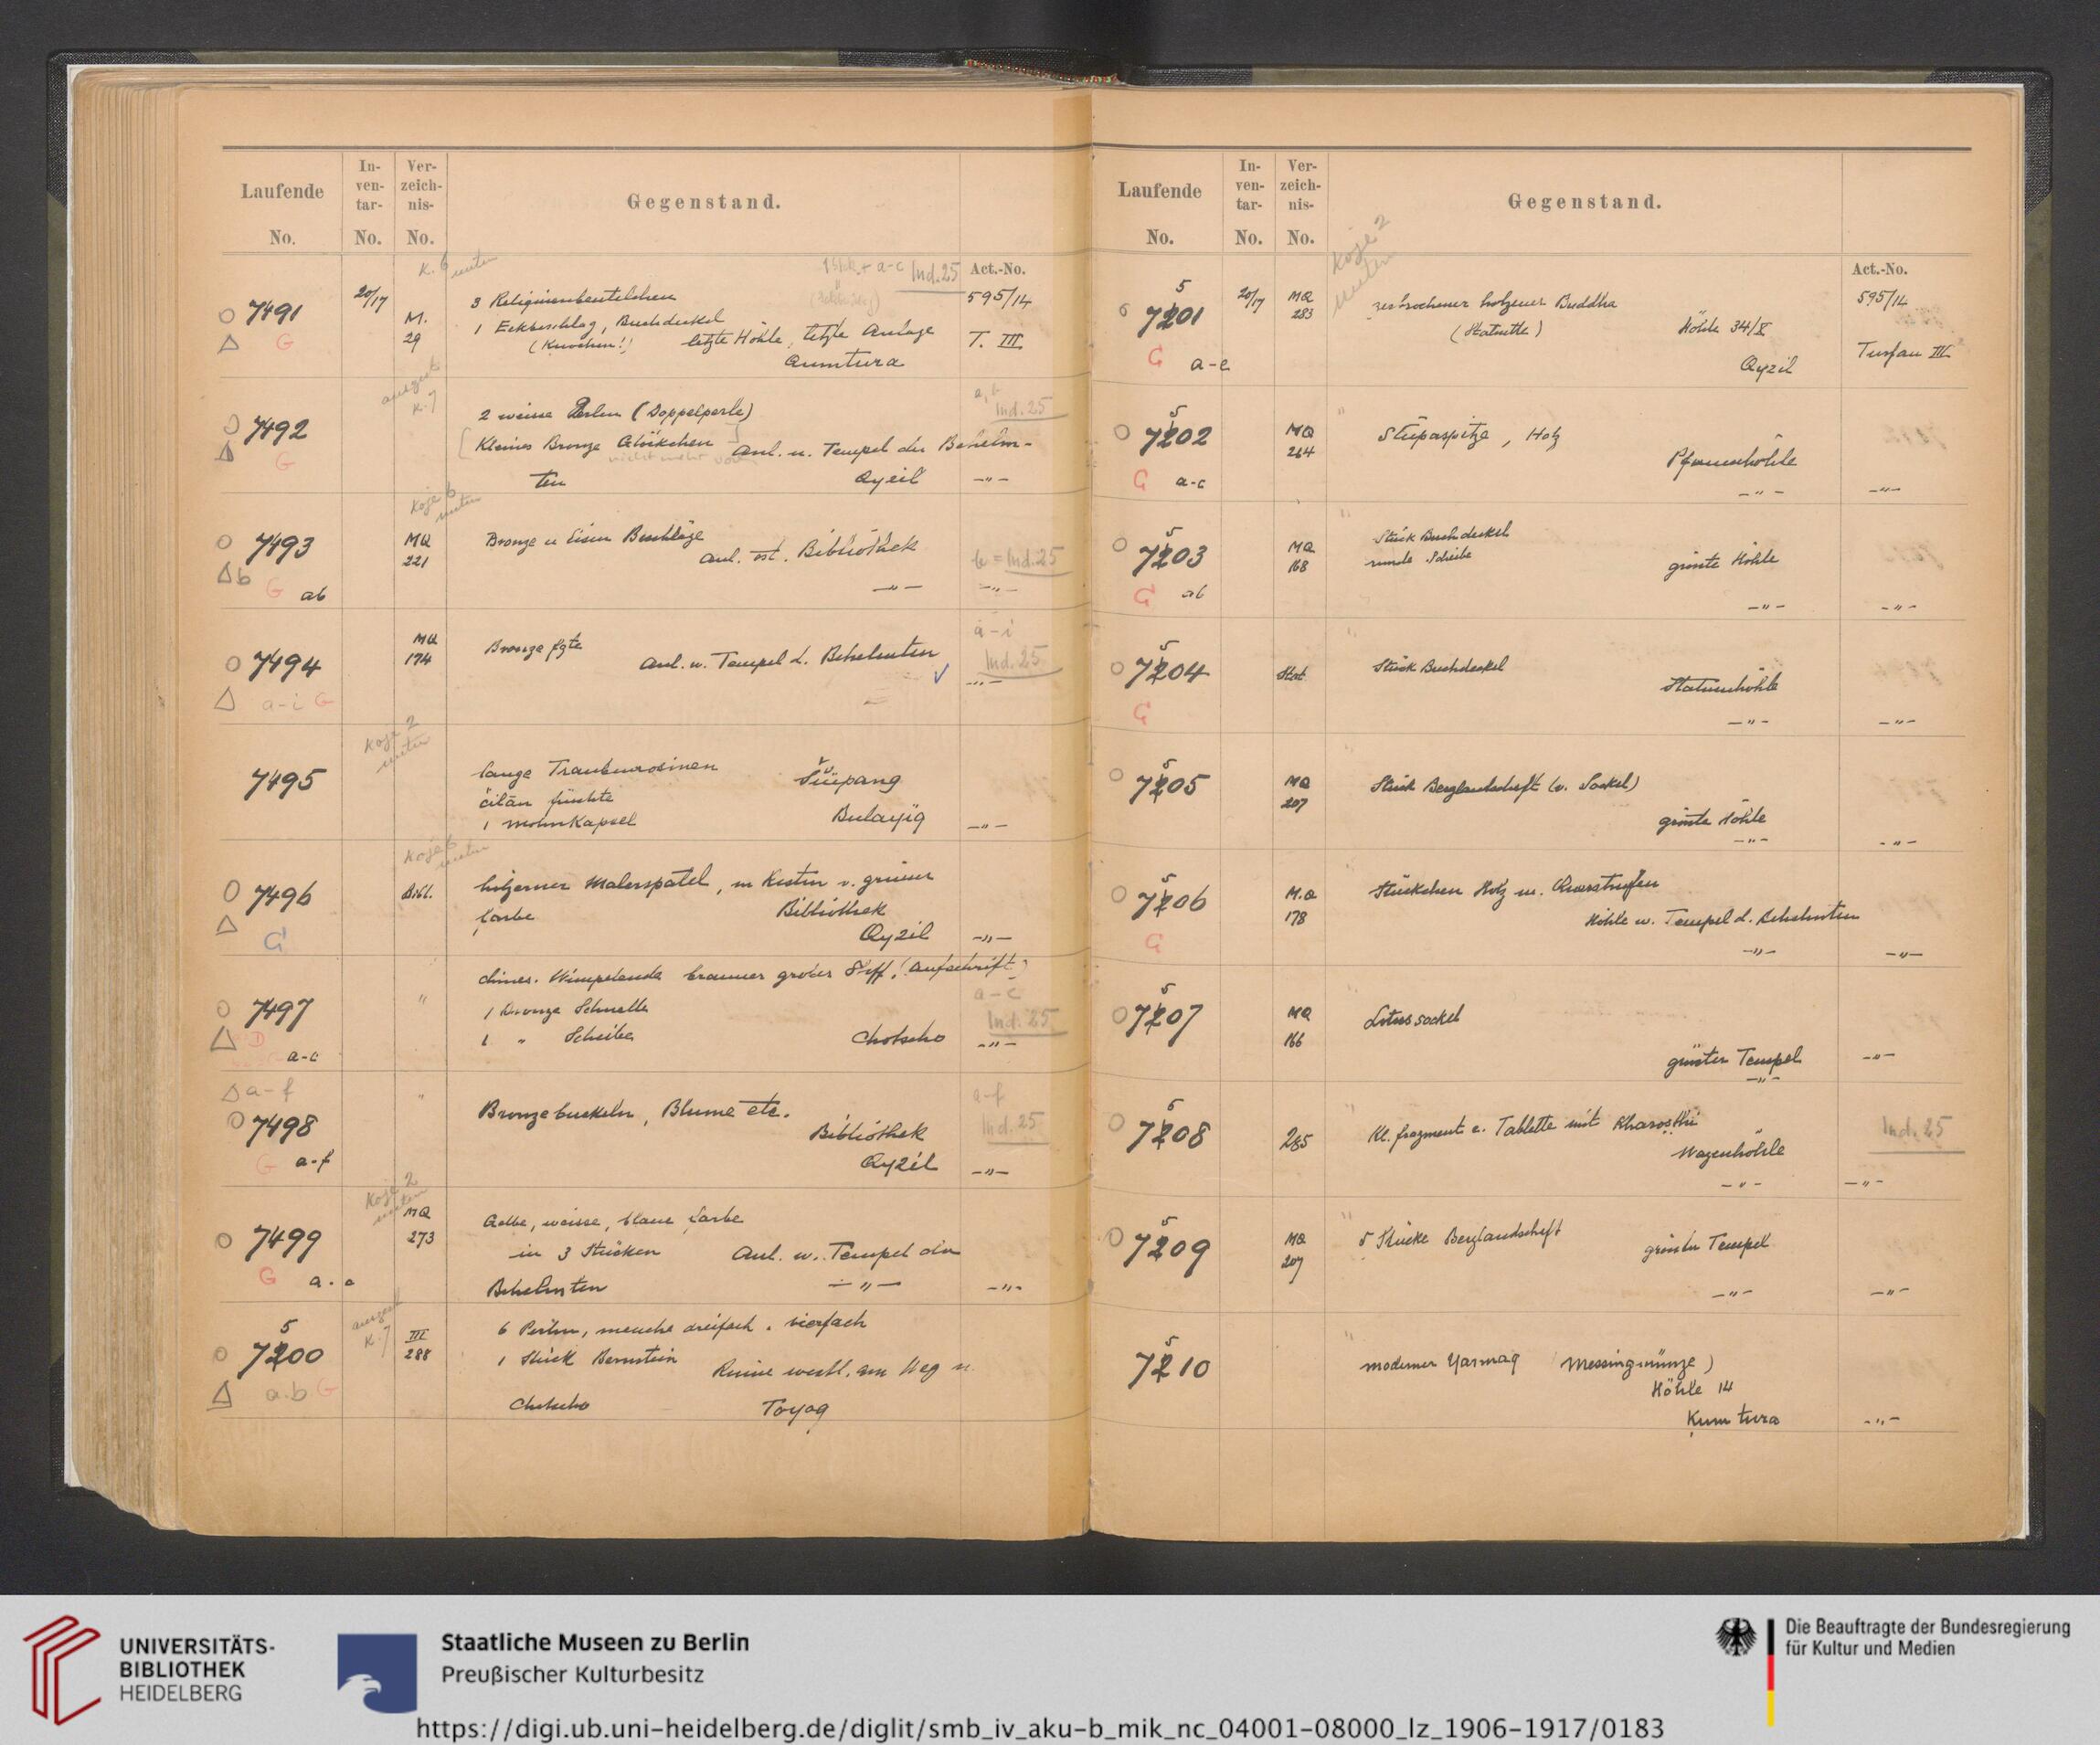 Laufende No.
Inventar- No.
Verzeichnis- No.
Gegenstand.
Act.-No.
7491
20/17
M. 29
K. 6 unten
1 Eckbeschlag, Buchdeckel
(Knochen!) letzte Höhle, letzte Anlage
Qumtura
a-c Ind. 25
595/14
T. III
G
7492
K. 7
2 weisse Perlen (Doppelperle)
Kleines Bronze Glöckchen
nicht mehr vorh.
Anl. n. Tempel der Behelm-
ten Qyzil
a, b
Ind. 25
-"-
G
7493
Koje 6 unten
MQ 221
Bronze u Eisen Beschläge
Anl. öst. Bibliothek
-"-
b = Ind. 25
-"-
b
G ab
7494
MQ 174
Bronze fgte
Anl. n. Tempel d. Behelmten
a-i
Ind. 25
-"-
a-i G
7495
Koje 2 unten
lange Traubenrosinen
čilän früchte
1 Mohnkapsel
Bulayïq
-"-
7496
Koje 6 unten
Bibl.
hölzerner Malerspatel, m Resten v. grüner
farbe Bibliothek
Qyzil
-"-
G
7497
"
chines. Wimpelende brauner grober Stff, (Aufschrift)
1 Bronze Schnalle
1 " Scheibe
Chotscho
a-c
Ind. 25
-"-
a-c
a-f
7498
"
Bronzebuckeln, Blume etc.
Bibliothek
Qyzil
a-f
Ind. 25
-"-
G a-f
7499
Koje 2 unten
MQ 273
Gelbe, weisse, blaue farbe
in 3 Stücken Anl. n. Tempel der
Behelmten -"-
-"-
G
5
7200
K. 7
III 288
6 Perlen, manche dreifach. vierfach
1 Stück Bernstein
Ruine westl. am Weg n.
Chotscho Toyoq
a.b G
Laufende No.
Inventar- No.
Verzeichnis- No.
Gegenstand.
Act.-No.
Koje 2 unten
5
7201
20/17
MQ 283
zerbrochener holzener Buddha
(Statuette) Höhle 34/X
Qyzil
595/14
Turfan III
G a-e
5
7202
MQ 264
Stūpaspitze, Holz
Pfauenhöhle
-"-
-"-
G a-c
5
7203
MQ 168
Stück Buchdeckel
runde Scheibe
grösste Höhle
-"-
-"-
G ab
5
7204
Stat.
Stück Buchdeckel
Statuenhöhle
-"-
-"-
G
5
7205
MQ 207
Stück Berglandschaft (v. Sockel)
grösste Höhle
-"-
-"-
5
7206
M.Q 178
Stückchen Holz m. Querstreifen
Höhle n. Tempel d. Behelmten
-"-
-"-
G
5
7207
MQ 166
Lotussockel
grösster Tempel
-"-
-"-
5
7208
285
Kl. fragment e. Tablette mit Kharoṣṭhi
Wagenhöhle
-"-
Ind. 25
-"-
5
7209
MQ 207
5 Stücke Berglandschaft
grösster Tempel
-"-
-"-
5
7210
moderner Yarmaq (Messingmünze)
Höhle 14
Kumtura
-"-
UNIVERSITÄTS-
BIBLIOTHEK
HEIDELBERG
Staatliche Museen zu Berlin
Preußischer Kulturbesitz
Die Beauftragte der Bundesregierung
für Kultur und Medien
https://digi.ub.uni-heidelberg.de/diglit/smb_iv_aku-b_mik_nc_04001-08000_lz_1906-1917/0183